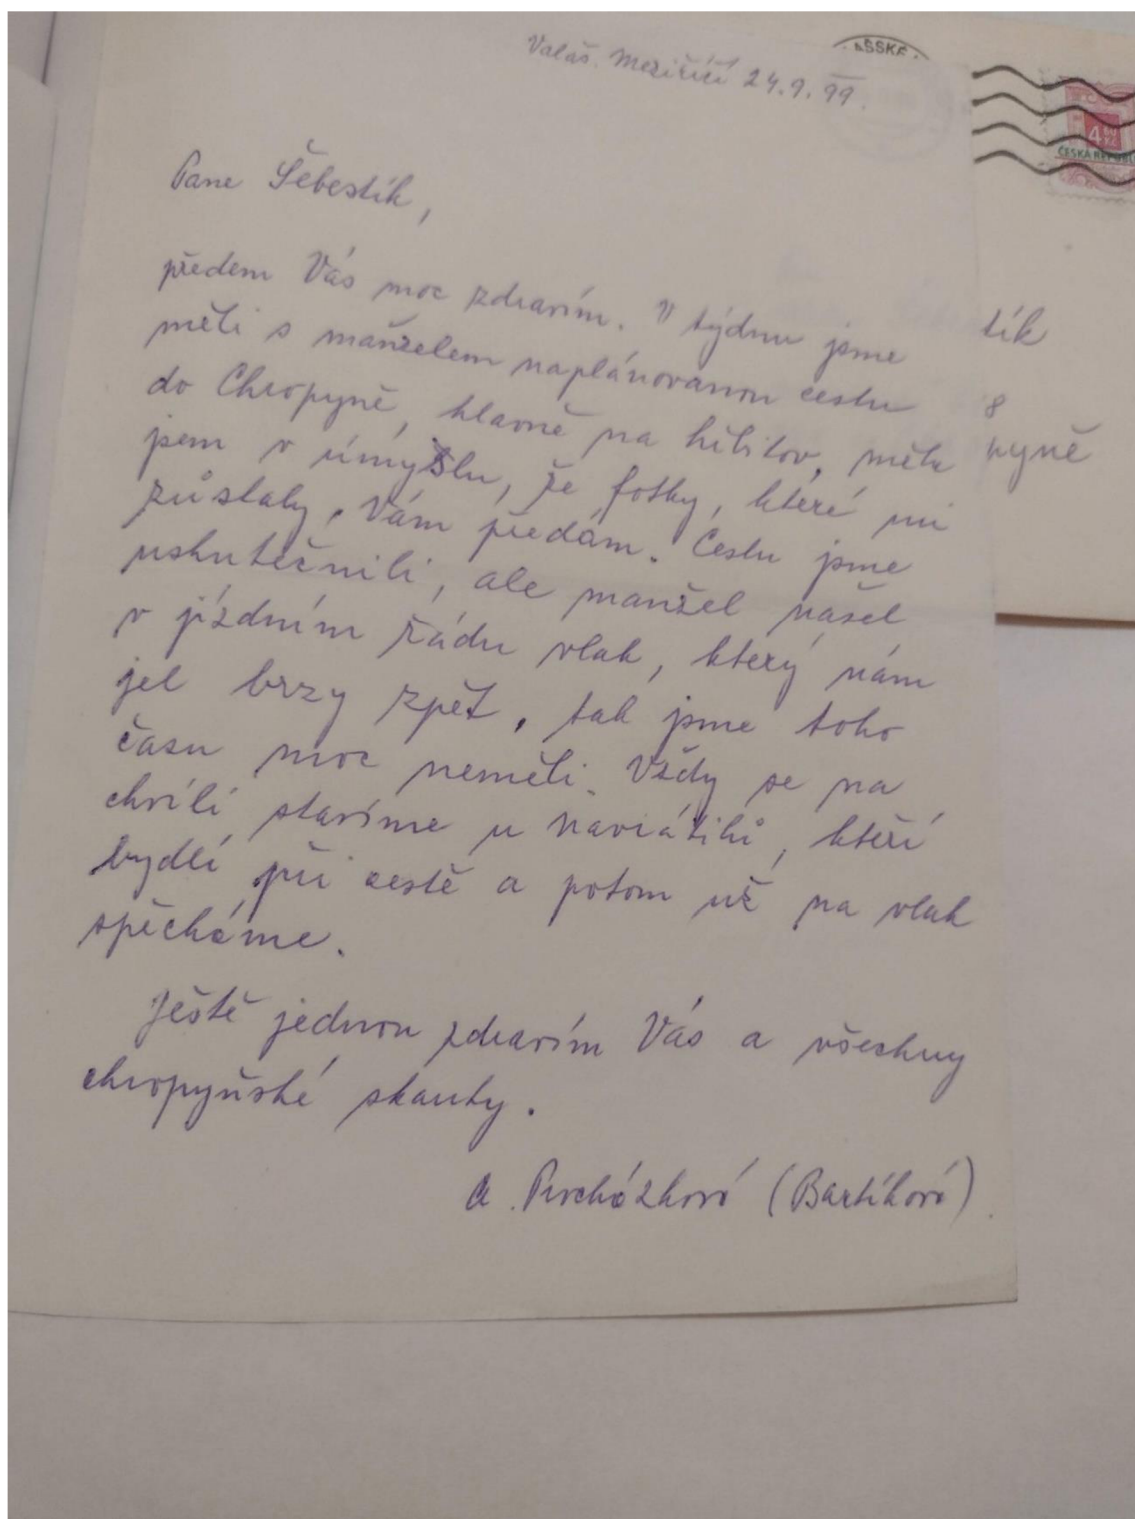 Valaš. Meziříčí 24.9.99.
AŠSKÉ
4 60
KČ
ČESKÁ REPUBL
Pane Šebestík,
předem Vás moc zdravím. V týdnu jsme
měli s manželem naplánovanou cestu
do Chropyně, hlavně na hřbitov, měla
jsem v úmyslu, že fotky, které mi
zůstaly, Vám předám. Cestu jsme
uskutečnili, ale manžel našel
v jízdním řádu vlak, který nám
jel brzy zpět, tak jsme toho
času moc neměli. Vždy se na
chvíli stavíme u Navrátilů, kteří
bydlí při cestě a potom už na vlak
spěcháme.
Ještě jednou zdravím Vás a všechny
chropyňské skauty.
A. Procházková (Bartíková).
tík
8
nyně